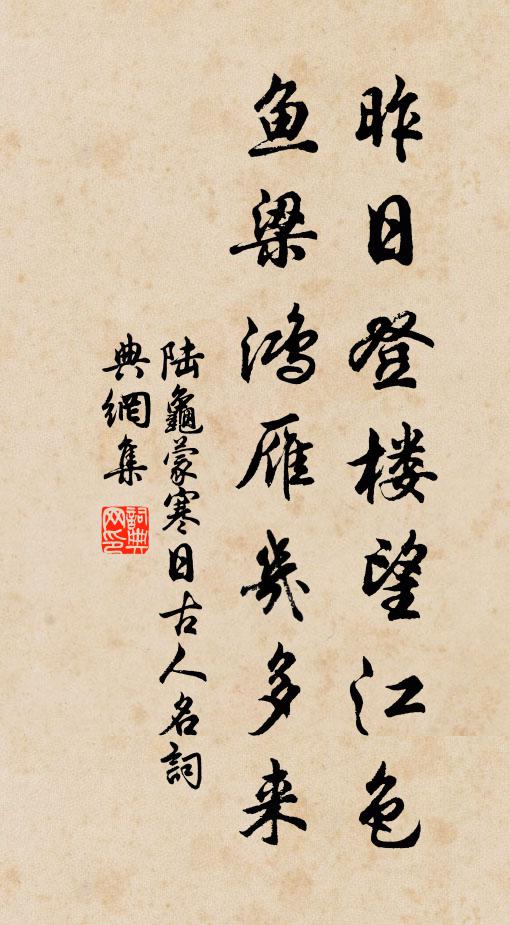 昨日登楼望江色
鱼梁鸿雁几多来
陆龜蒙寒日古人名詞
典網集
詞典
网印